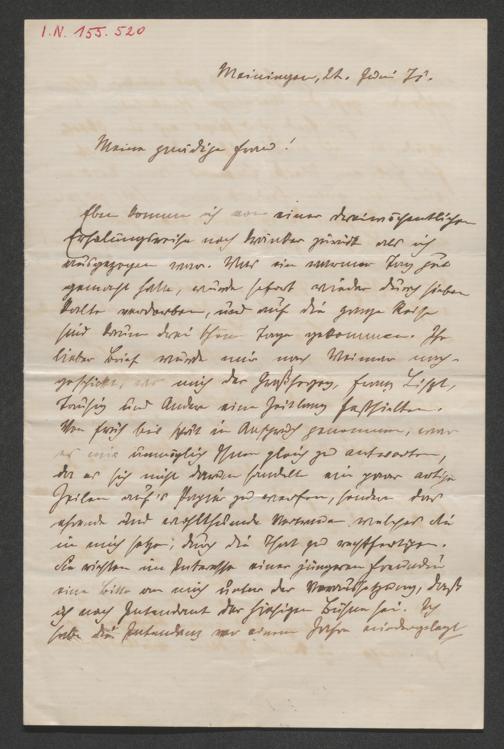 I.N. 155.520
Meiningen, 22. Juni 71.
Meine gnädige Frau!
Eben komme ich von einer dreiwöchentlichen
Erholungsreise noch kränker zurück als ich
ausgezogen war. Was ein warmer Tag gut
gemacht hatte, wurde sofort wieder durch sieben
kalte verdorben, und auf die ganze Reise
sind kaum drei schöne Tage gekommen. Ihr
lieber Brief wurde mir nach Weimar nach-
geschickt, wo mich der Großherzog, Franz Liszt,
Tausig und Andere eine Zeitlang festhielten.
Von früh bis spät in Anspruch genommen, war
es mir unmöglich Ihnen gleich zu antworten,
da es sich nicht darum handelt ein paar artige
Zeilen auf's Papier zu werfen, sondern das
ehrende und wohlthuende Vertrauen welches Sie
in mich setzen, durch die That zu rechtfertigen.
Sie richten im Interesse einer jüngeren Freundin
eine Bitte an mich unter der Voraussetzung, daß
ich noch Intendant der hiesigen Bühne sei. Ich
habe die Intendanz vor einem Jahre niedergelegt